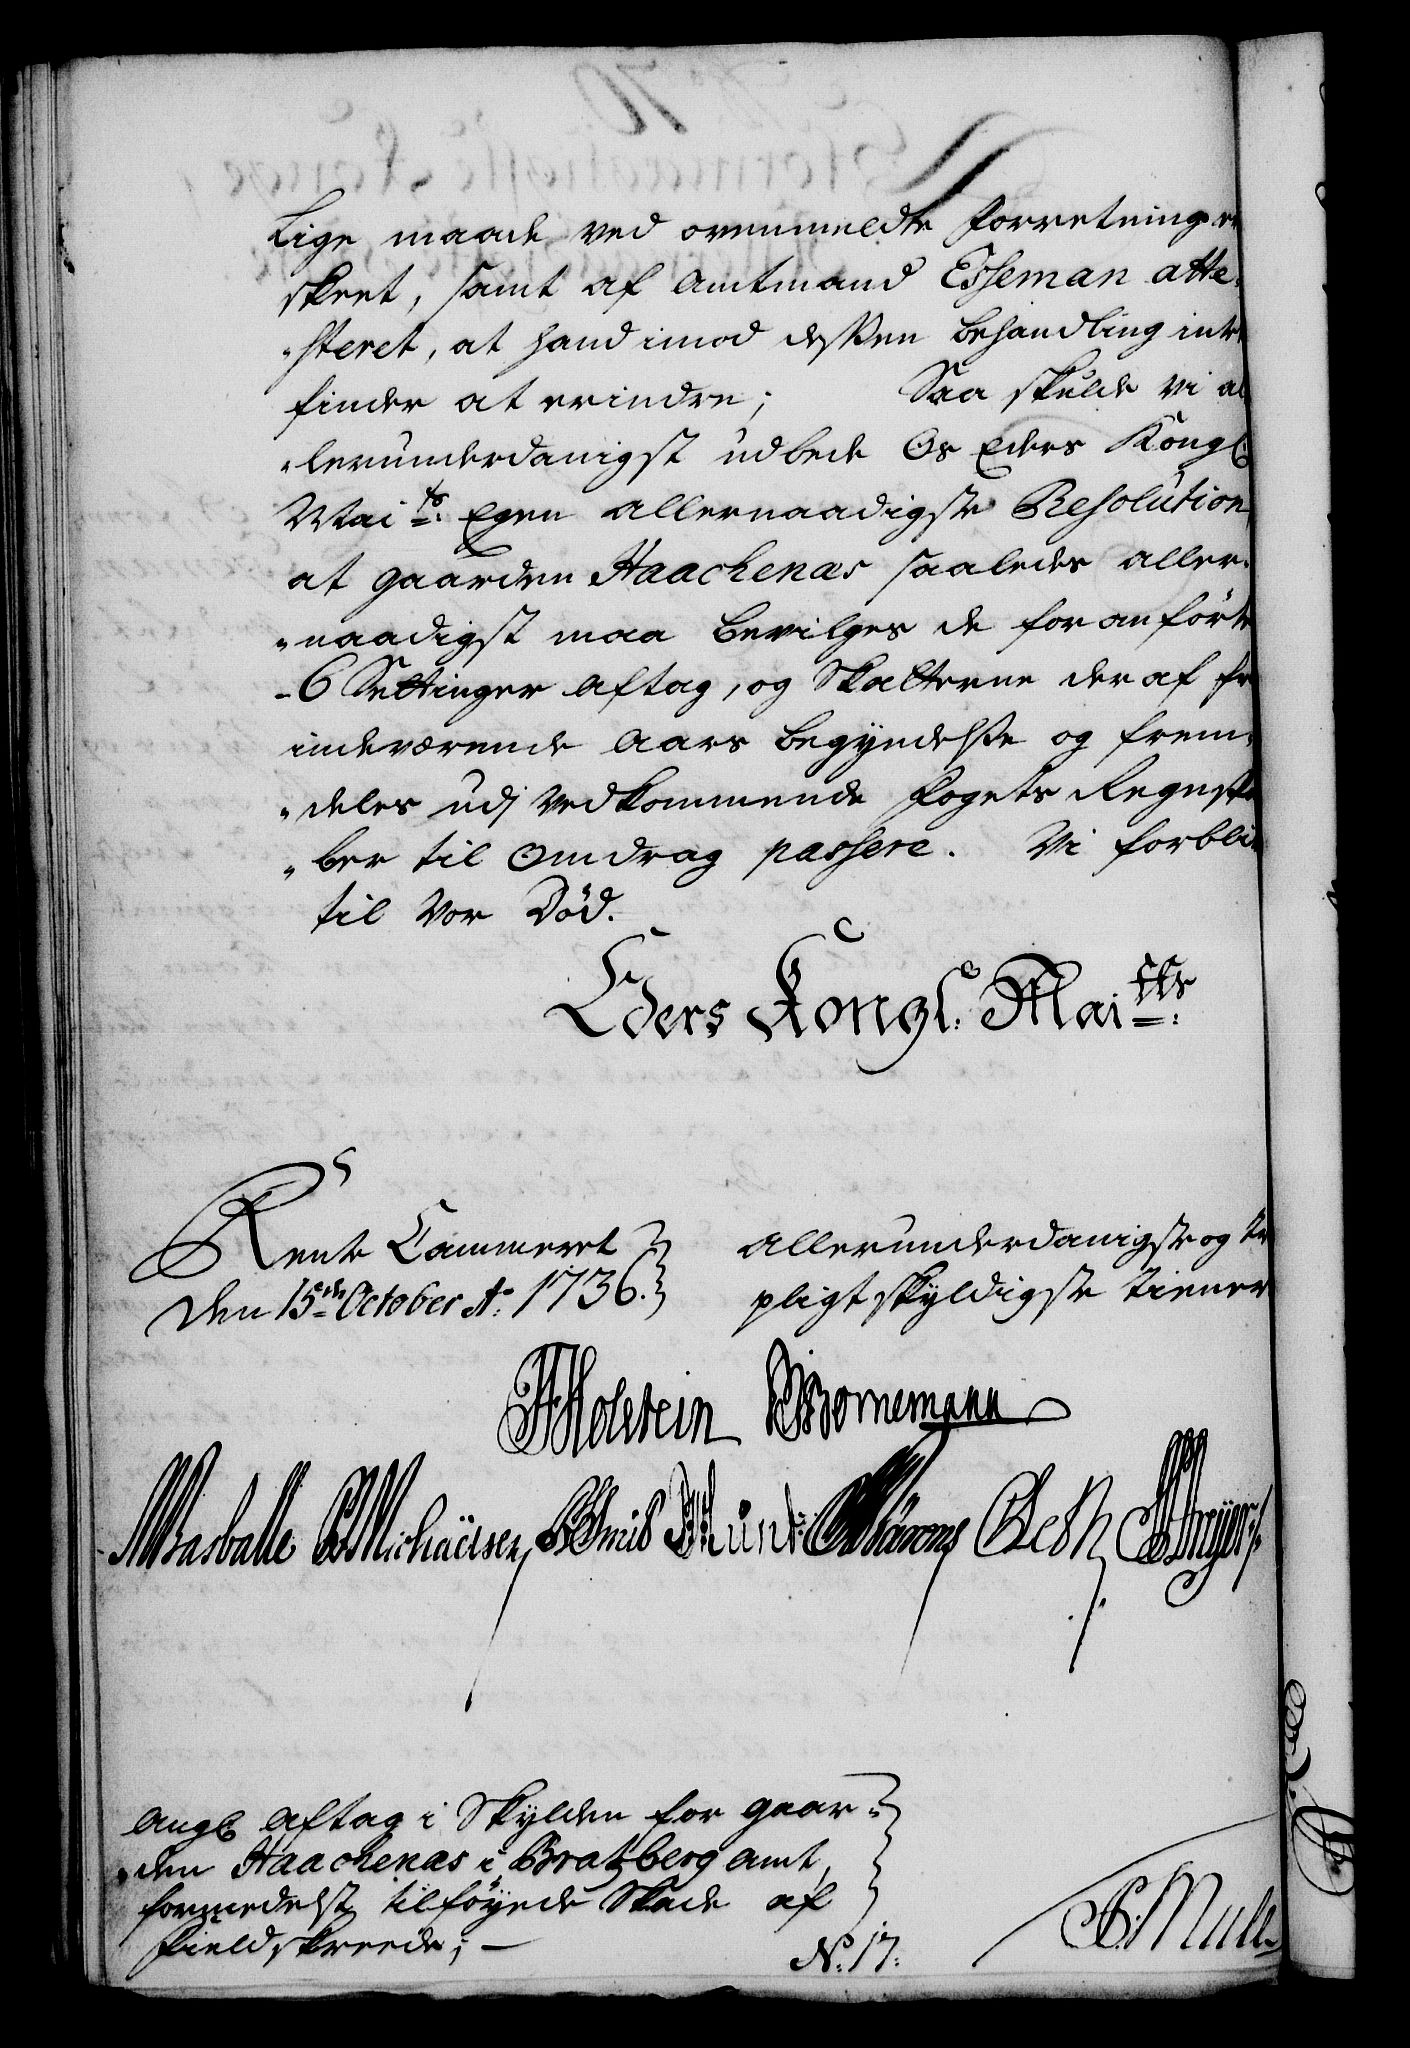 Lige maade ved ovenmeldte Forretning er
skeet, samt af Amtmand Esseman atte-
-steret, at hand imod desßen Behandling intet
finder at erindre; Saa skulde vi al-
-lerunderdanigst udbede Os Eders Kongl.
Mai.ts: Egen allernaadigste Resolution,
at gaarden Haachenæs saaledes aller-
-naadigst maa bevilges de foranførte
-6 Settinger Aftag, og Skatterne deraf fra
indeværende Aars Begyndelße og frem-
-deles udj vedkommende Fogets Regnska-
-ber til Omdrag passere. Vi forbli-
til Vor Død.
Eders Kongl. Mai.tts:
Rente Cammeret
Den 15.de October Ao. 1736.
allerunderdanigste og
pligtskyldigste tienere
Holstein Bornemann
Basballe Michaëlsen
angl. Aftag i Skylden for gaar-
-den Haachenæs i Bratzberg amt,
formedelst tilføyede Skade af
Fieldskreede; -
No. 17.